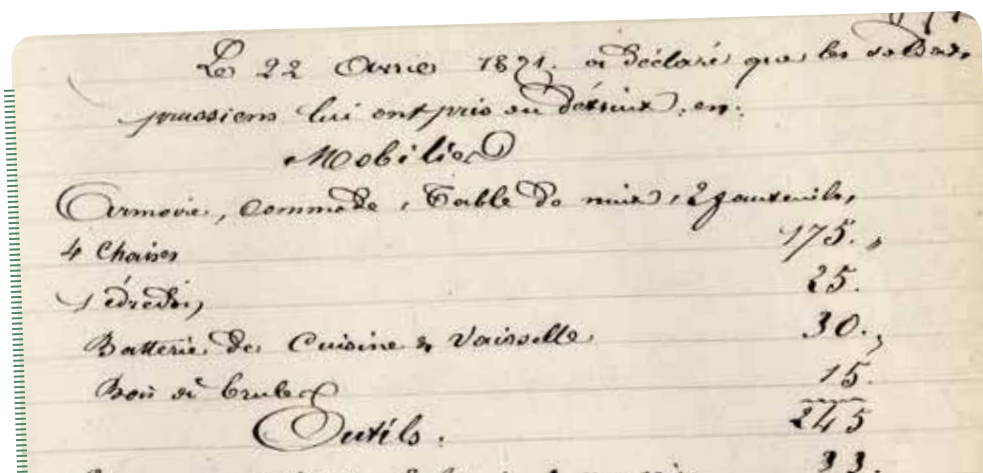 Le 22 Avril 1871. a déclaré que les soldats
prussiens lui ont pris ou détruit. en:
Mobilier
Armoire, commode, Table de nuit, 2 fauteuils,
4 Chaises 175. "
1 édredon, 25.
Batterie de Cuisine & Vaisselle 30. "
Bois à bruler 15.
245
Outils.
33.